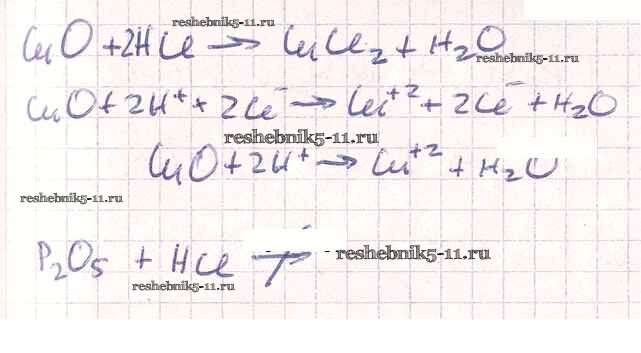 reshebnik5-11.ru
CuO + 2HCl → CuCl₂ + H₂O
reshebnik5-11.ru
CuO + 2H⁺ + 2Cl⁻ → Cu⁺² + 2Cl⁻ + H₂O
reshebnik5-11.ru
CuO + 2H⁺ → Cu⁺² + H₂O
reshebnik5-11.ru
P₂O₅ + HCl ↛ - reshebnik5-11.ru
reshebnik5-11.ru